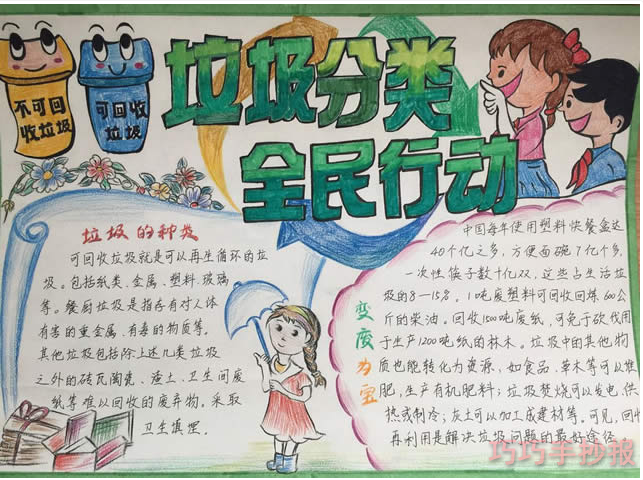 不可回
收垃圾
可回收
垃圾
垃圾分类
全民行动
垃圾的种类
可回收垃圾就是可以再生循环的垃
圾。包括纸类、金属、塑料、玻璃
等。餐厨垃圾是指存有对人体
有毒的重金属、有毒的物质等。
其他垃圾包括除上述几类垃圾
之外的砖瓦陶瓷、渣土、卫生间废
纸等难以回收的废弃物。采取
卫生填埋.
变废为宝
中国每年使用塑料快餐盒达
40个亿之多，方便面碗7亿个多，
一次性筷子数十亿双，这些占生活垃
圾的8—15%。1吨废塑料可回收回炼600公
斤的柴油。回收1500吨废纸，可免于砍伐用
于生产1200吨纸的林木。垃圾中的其他物
质也能转化为资源，如食品、草木等可以堆
肥，生产有机肥料；垃圾焚烧可以发电、供
热或制冷；灰土可以加工成建材等。可见，回收
再利用是解决垃圾问题的最好途径
巧巧手抄报